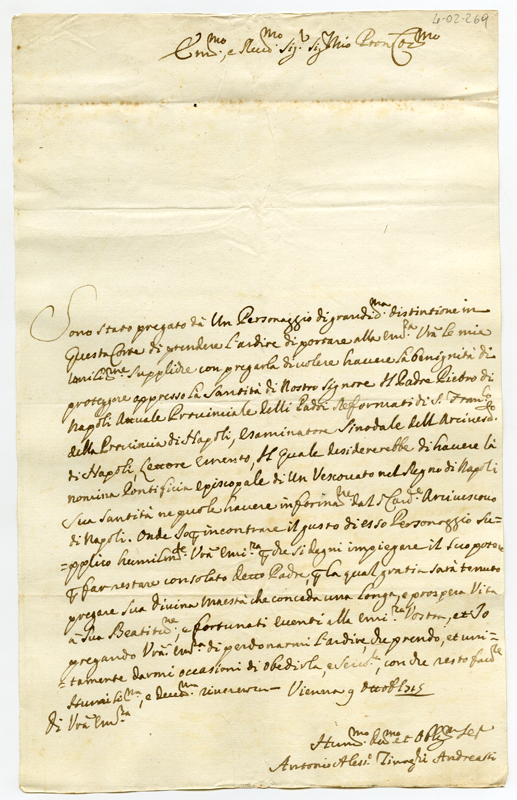 4-02-269
Em.mo, e Reu.mo Sig.r Sig.r Mio Pron Coll.mo
Sono stato pregato dà Un Personaggio di grandis.ma distintione in
Questa Corte di prendere l'ardire di portare alla Em.za Vra le mie
humilissime suppliche con pregarla di volere havere la benignità di
proteggere appresso la Santità di Nostro Signore Il Padre Pietro di
Napoli Attuale Provinciale delli Padri Reformati di S. Fran.co
della Provincia di Napoli, Esaminatore Sinodale dell Arcivesd.o
di Napoli Lettore Emerito, Il quale desidererebbe di havere la
nomina Pontificia Episcopale di Un Vescovato nel Regno di Napoli
Sua Santità ne puole havere inform.ne dal S. Card.e Arcivescovo
di Napoli. Onde Io incontrare il gusto di esso Personaggio Su-
=pplico humilm.te Vra Emi.za che si degni impiegare il suo potere
far restare consolato detto Padre, la qual gratia sarà tenuto
pregare Sua Divina Maestà che conceda una longa, e prospera Vita
à Sua Beatitu.ne, e fortunati eventi alla Emi.za Vostra, et Io
pregando Vra Em.za di perdonarmi l'ardire che prendo, et uni-
=tamente darmi occasioni di obedirla, e con che resto
Humilis.ma, e riverenza Vienna 9
di Vra Em.za
Hum.mo et Oblig.mo
Antonio Aless. Andreasi